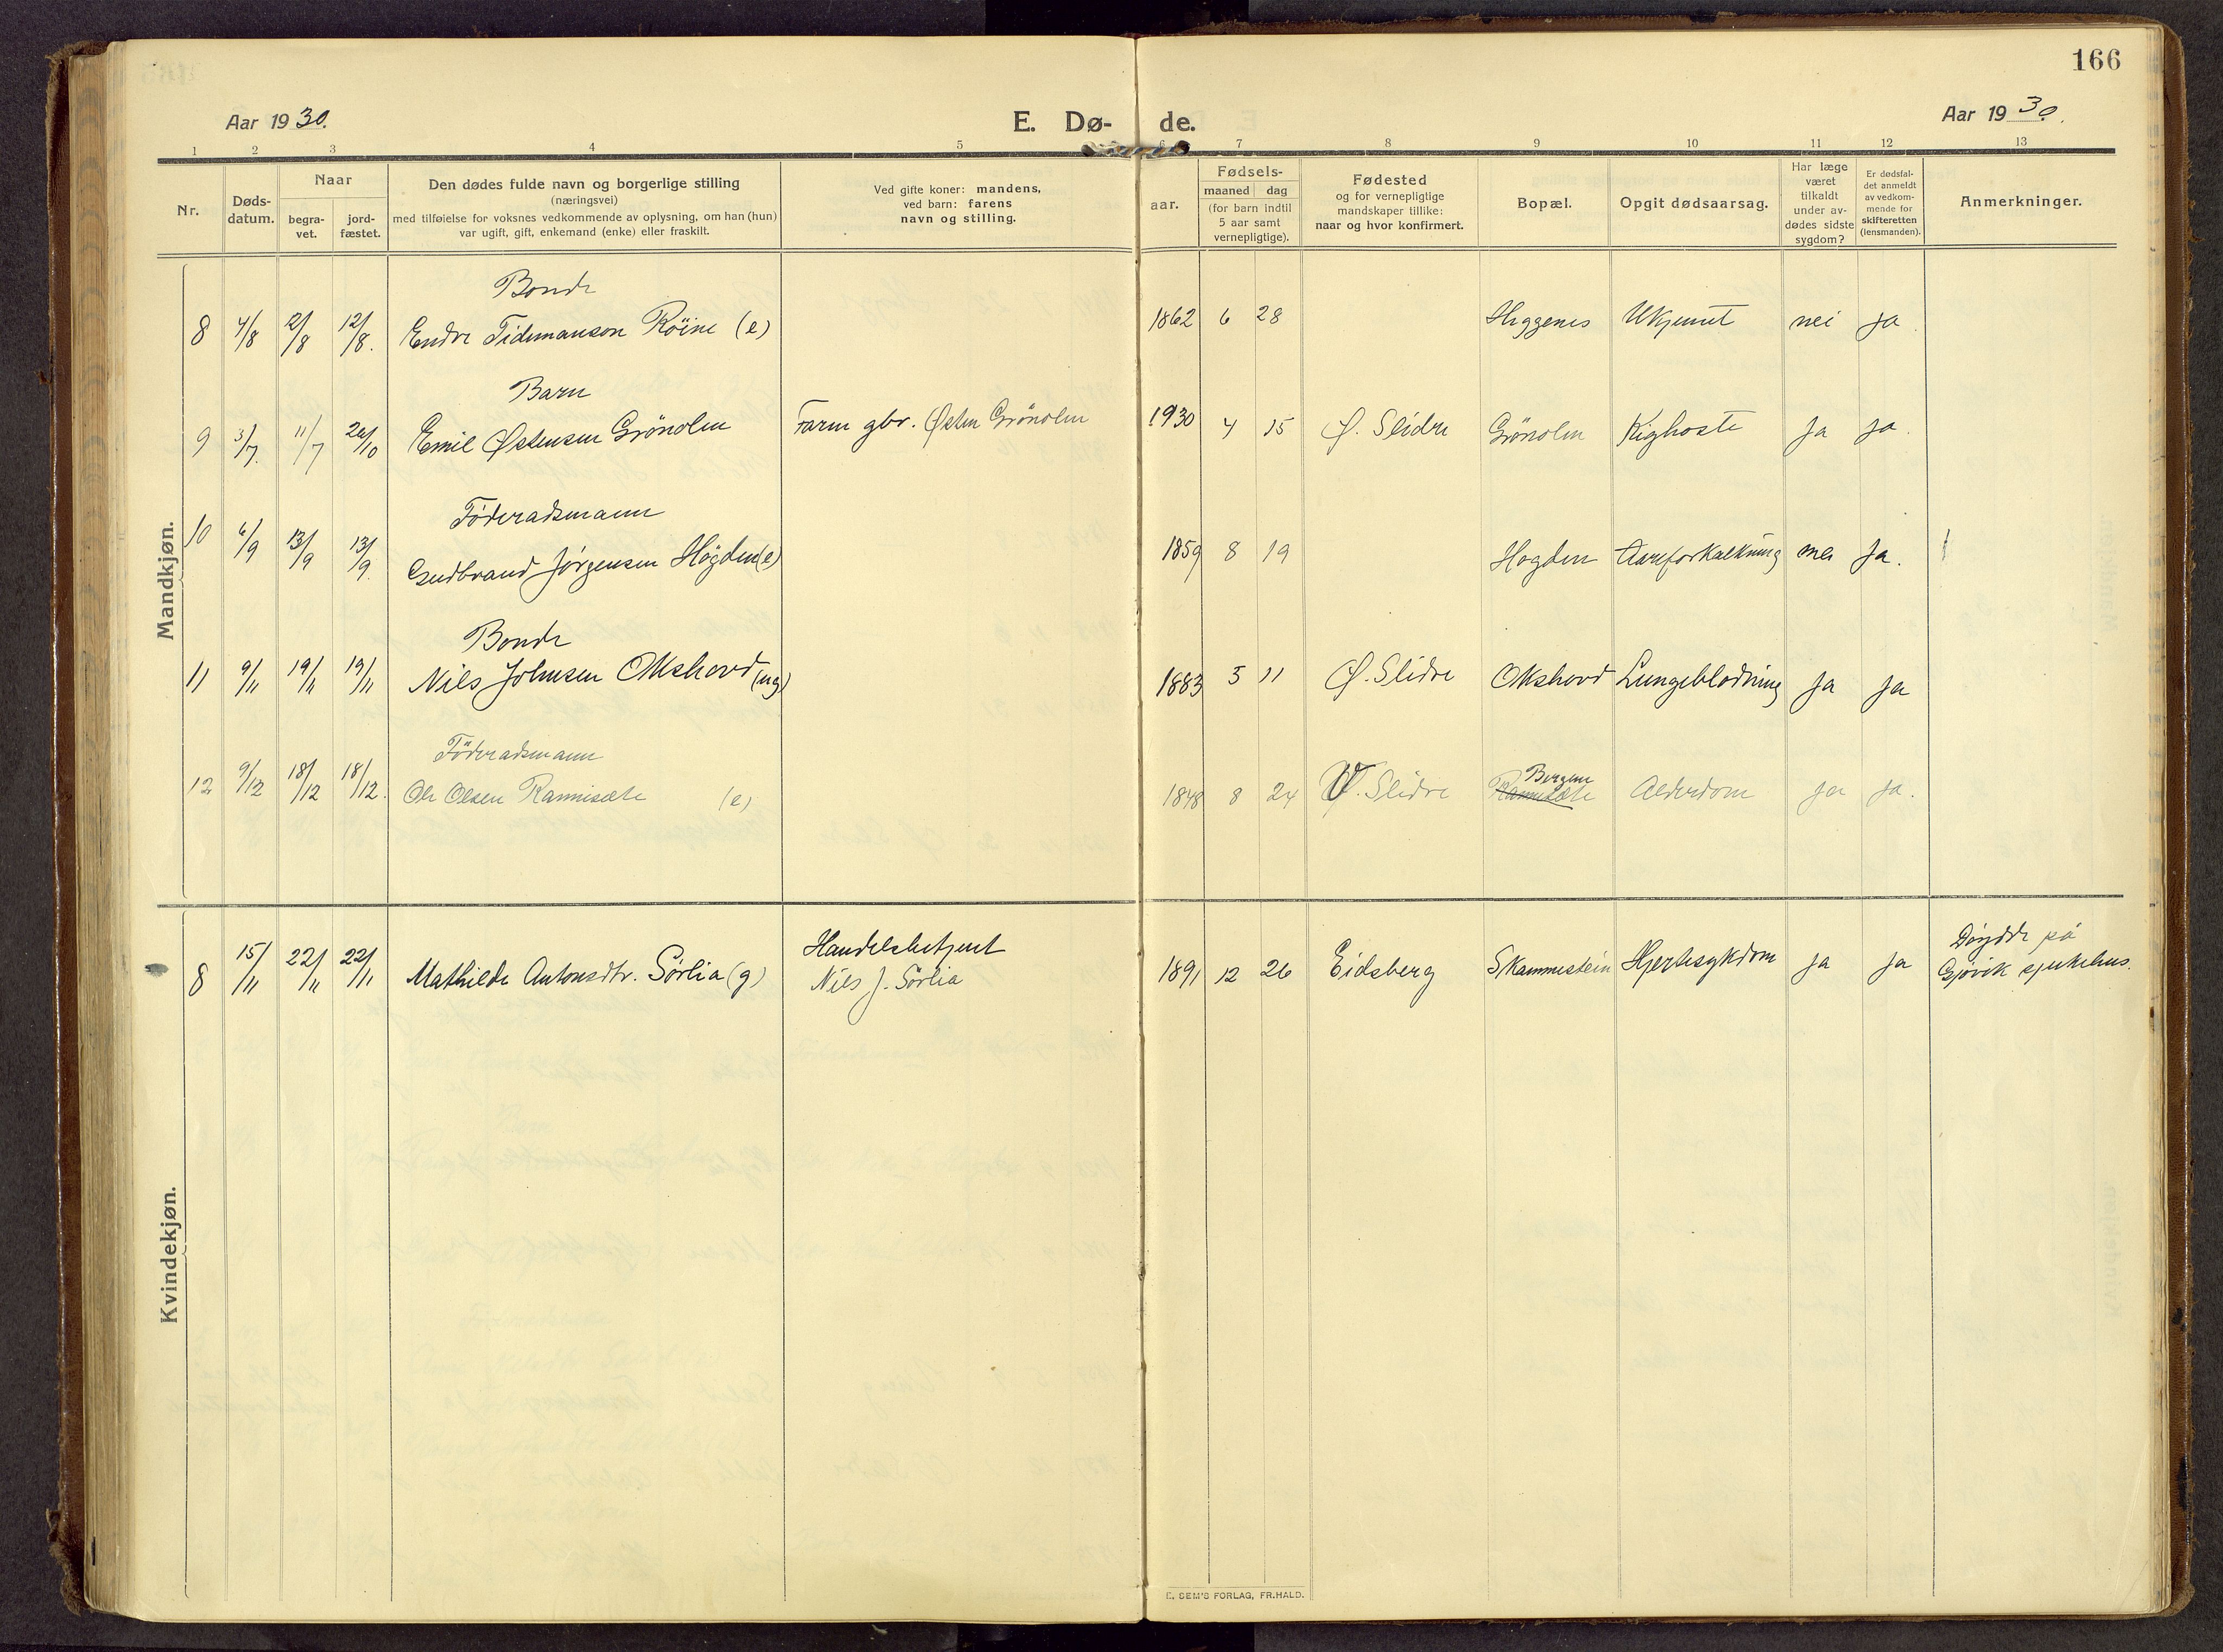 166
Aar 1930.
E. Dø- de.
Aar 1930.
1 2 3 4 5 6 7 8 9 10 11 12 13
Nr.
Døds-
datum.
Naar
begra-
vet.
jord-
fæstet.
Den dødes fulde navn og borgerlige stilling
(næringsvei)
med tilføielse for voksnes vedkommende av oplysning, om han (hun)
var ugift, gift, enkemand (enke) eller fraskilt.
Ved gifte koner: mandens,
ved barn: farens
navn og stilling.
aar.
Fødsels-
maaned dag
(for barn indtil
5 aar samt
vernepligtige).
Fødested
og for vernepligtige
mandskaper tillike:
naar og hvor konfirmert.
Bopæl.
Opgit dødsaarsag.
Har læge
været
tilkaldt
under av-
dødes sidste
sygdom?
Er dødsfal-
det anmeldt
av vedkom-
mende for
skifteretten
(lensmanden).
Anmerkninger.
Mandkjøn.
Bonde
8 4/8 12/8 12/8. Endre Tidemanson Röine (e) 1862 6 28 Heggenes Ukjennt nei ja
Barn
9 3/7. 11/7 26/10 Emil Østensen Grönolen Farm gbr. Østen Grönolen 1930 4 15 Ø. Slidre Grönolen Kighoste ja ja.
Föderadsmann
10 6/9 13/9 13/9. Gudbrand Jørgensen Högden (e) 1859 8 19 Hogden Aareforkalkning nei ja.
Bonde
11 9/11 19/11 19/11 Nils Johnsen Okshovd (ug) 1883 5 11 Ø. Slidre Okshovd Lungeblødning ja ja
Föderadsmann
Bergene
12 9/12 18/12 18/12. Ole Olsen Rannisæte (e) 1848 8 24 V. Slidre Rannisæte Alderdom ja ja.
Kvindekjøn.
Handelsbetjent
Døydde på
8 15/11 22/11 22/11 Mathilde Antonsdtr. Sörlia (g) Nils J. Sörlia 1891 12 26 Eidsberg Skammestein Hjertesykdom ja ja Gjøvik sjukehus.
E. SEM'S FORLAG, FR.HALD.